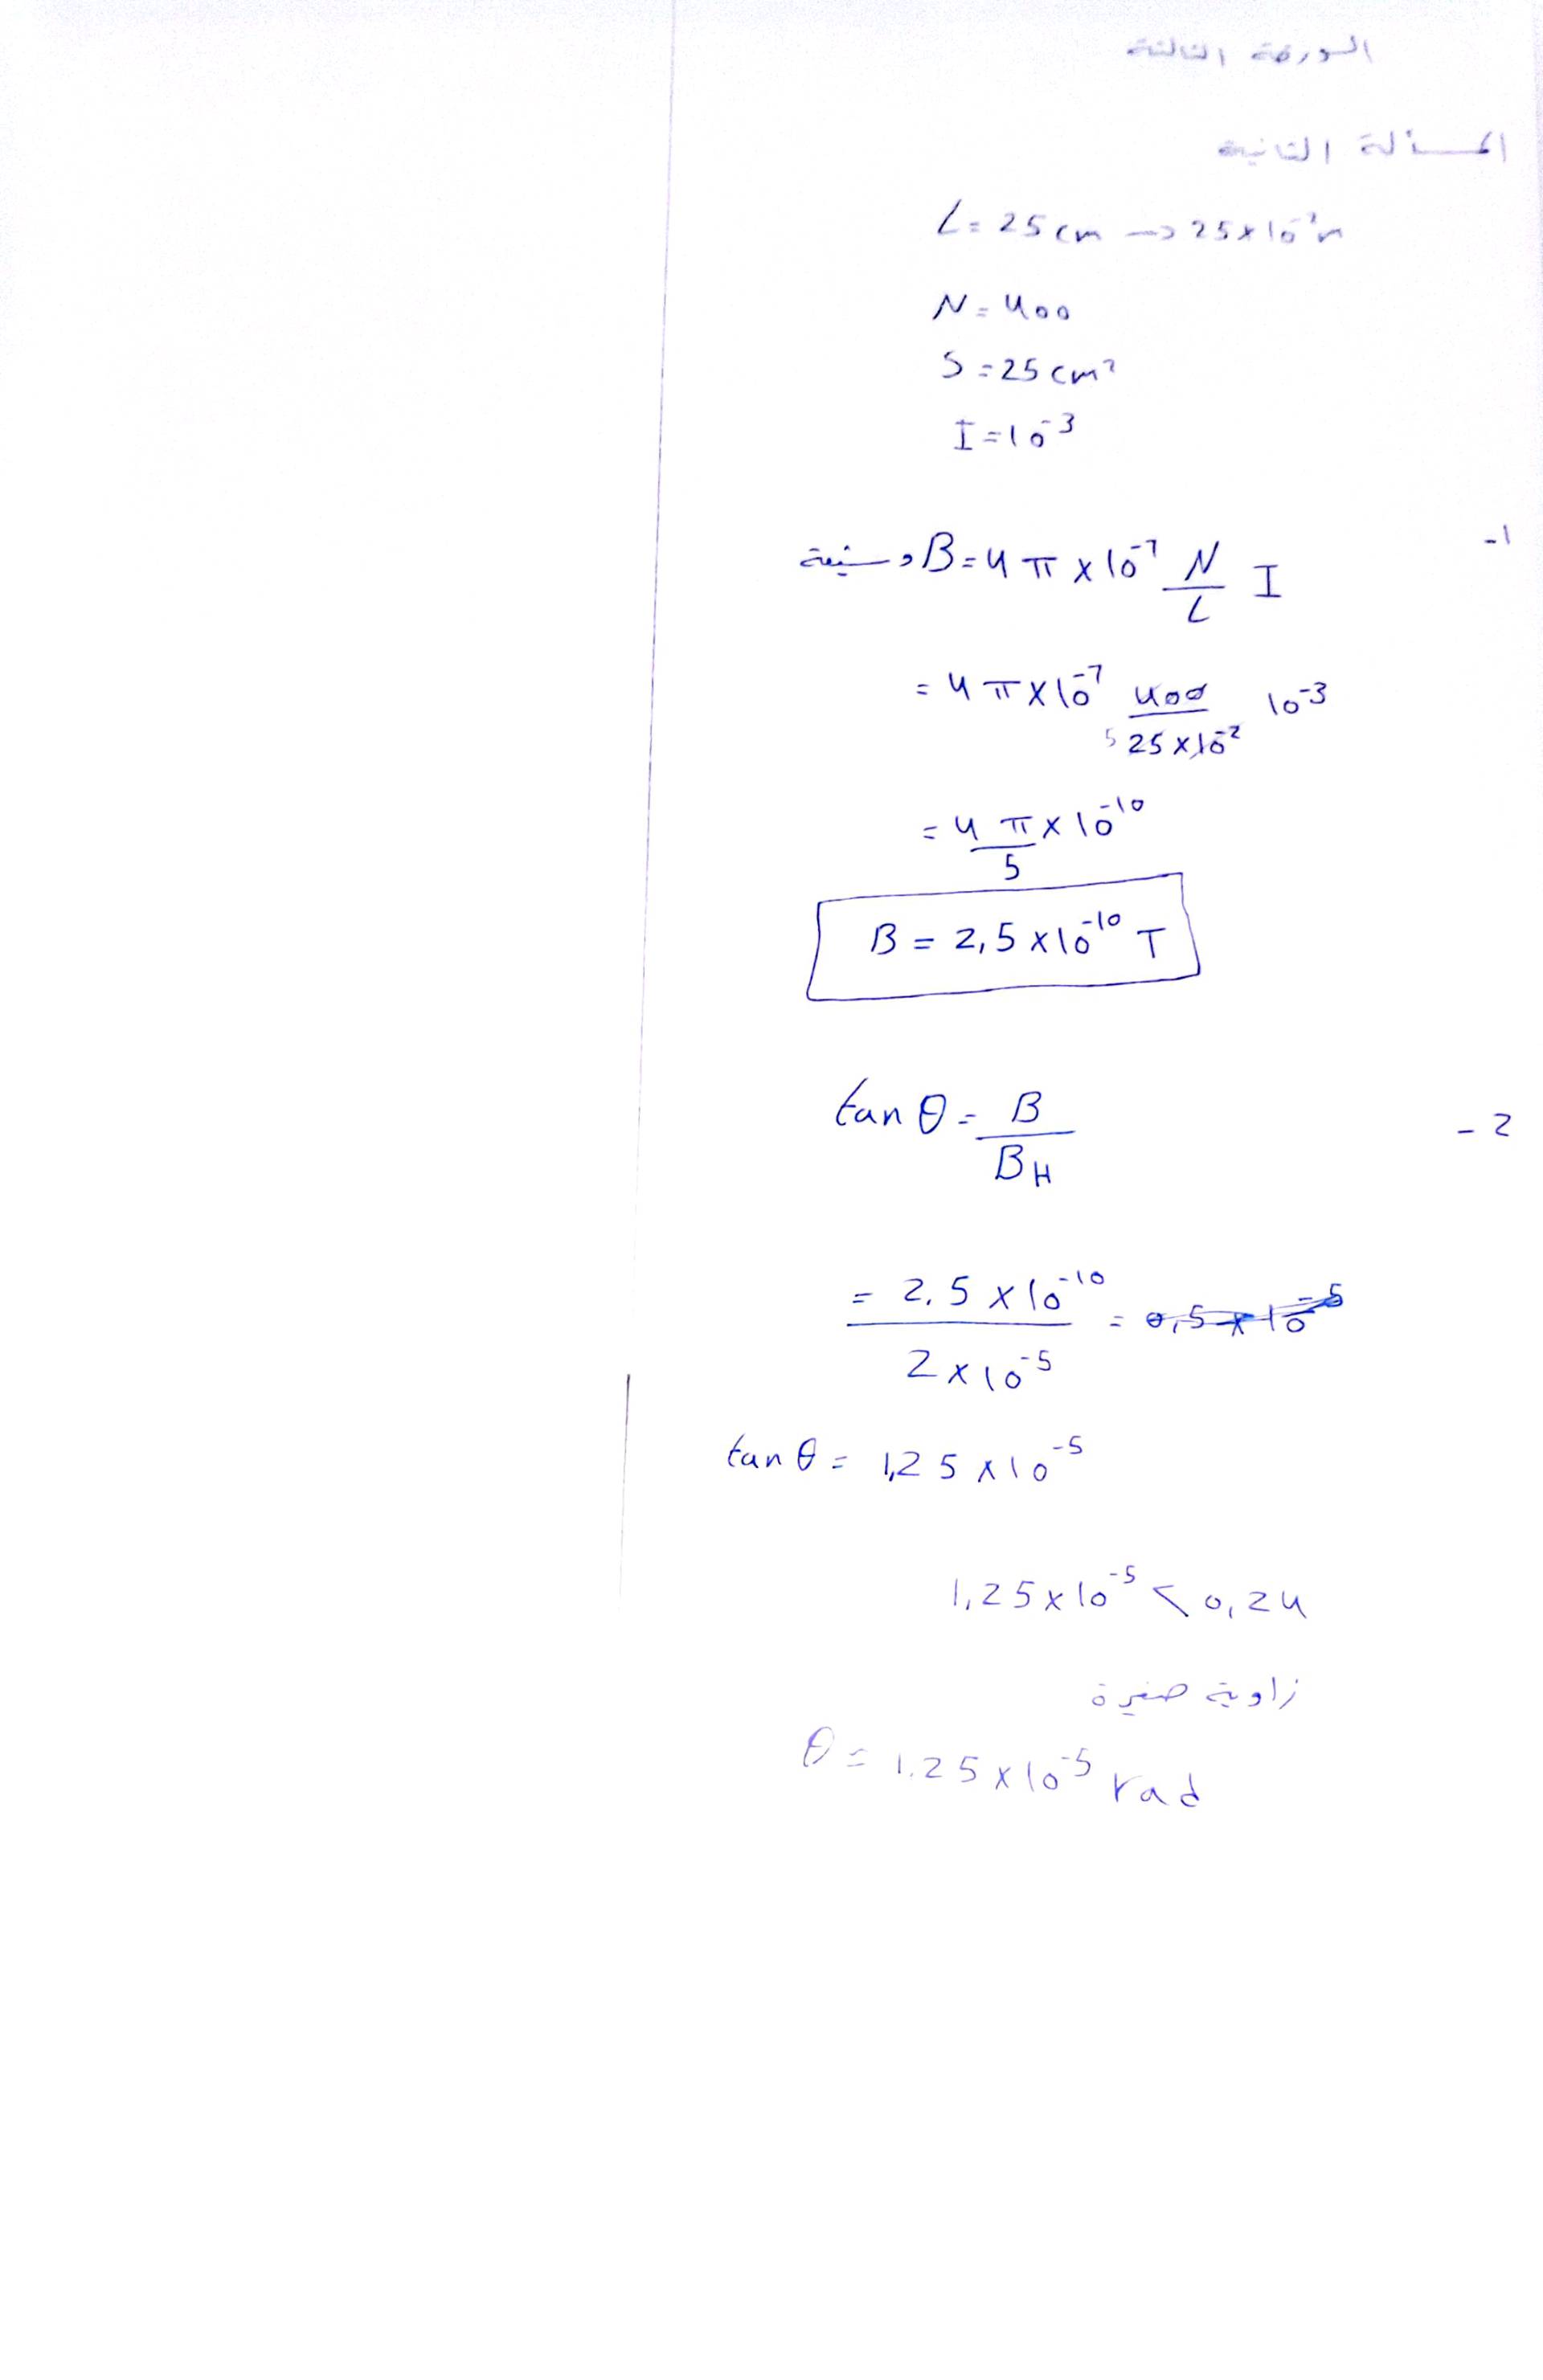 الورقة الثالثة
المسألة الثانية
L = 25 cm → 25 × 10⁻² m
N = 400
S = 25 cm²
I = 10⁻³
1 -
B = 4 π × 10⁻⁷ N/L I وشيعة
= 4 π × 10⁻⁷ 400 / 25 × 10⁻² 10⁻³
5
= 4 π / 5 × 10⁻¹⁰
B = 2,5 × 10⁻¹⁰ T
2 -
tan θ = B / B_H
= 2.5 × 10⁻¹⁰ / 2 × 10⁻⁵ = 0,5 × 10⁻⁵
tan θ = 1,25 × 10⁻⁵
1,25 × 10⁻⁵ < 0,24
زاوية صغيرة
θ = 1.25 × 10⁻⁵ rad